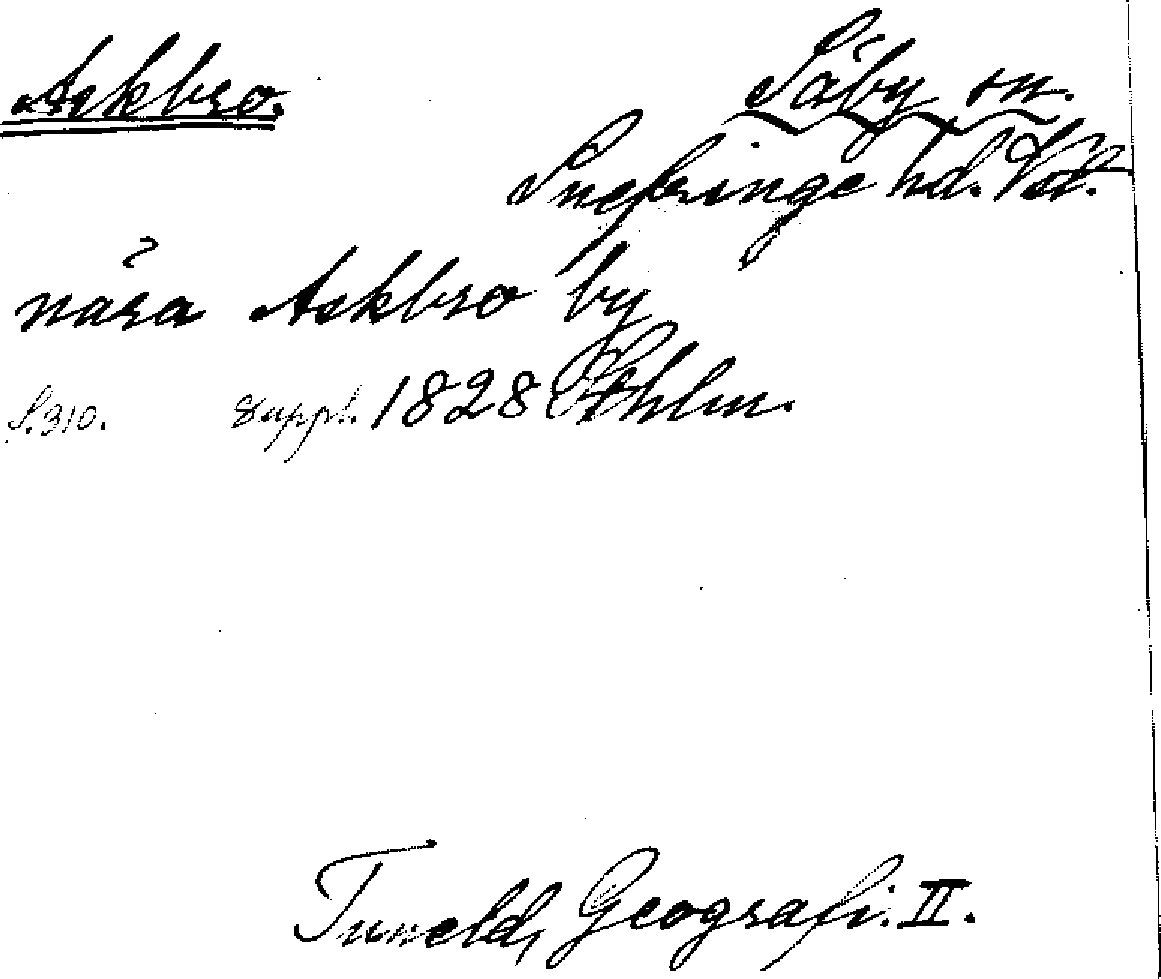 Askbro.
Säby sn.
Snefringe hd. Vstl.
nära Askbro by
s. 310. Suppl. 1828 Sthlm.
Tuneld, Geografi. II.